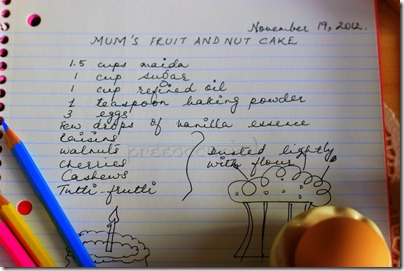 November 19, 2012.
MUM'S FRUIT AND NUT CAKE
1.5 cups maida
1 cup sugar
1 cup refined oil
1 teaspoon baking powder
3 eggs
Few drops of vanilla essence
raisins
walnuts
cherries
Cashews
Tutti-frutti
dusted lightly
with flour